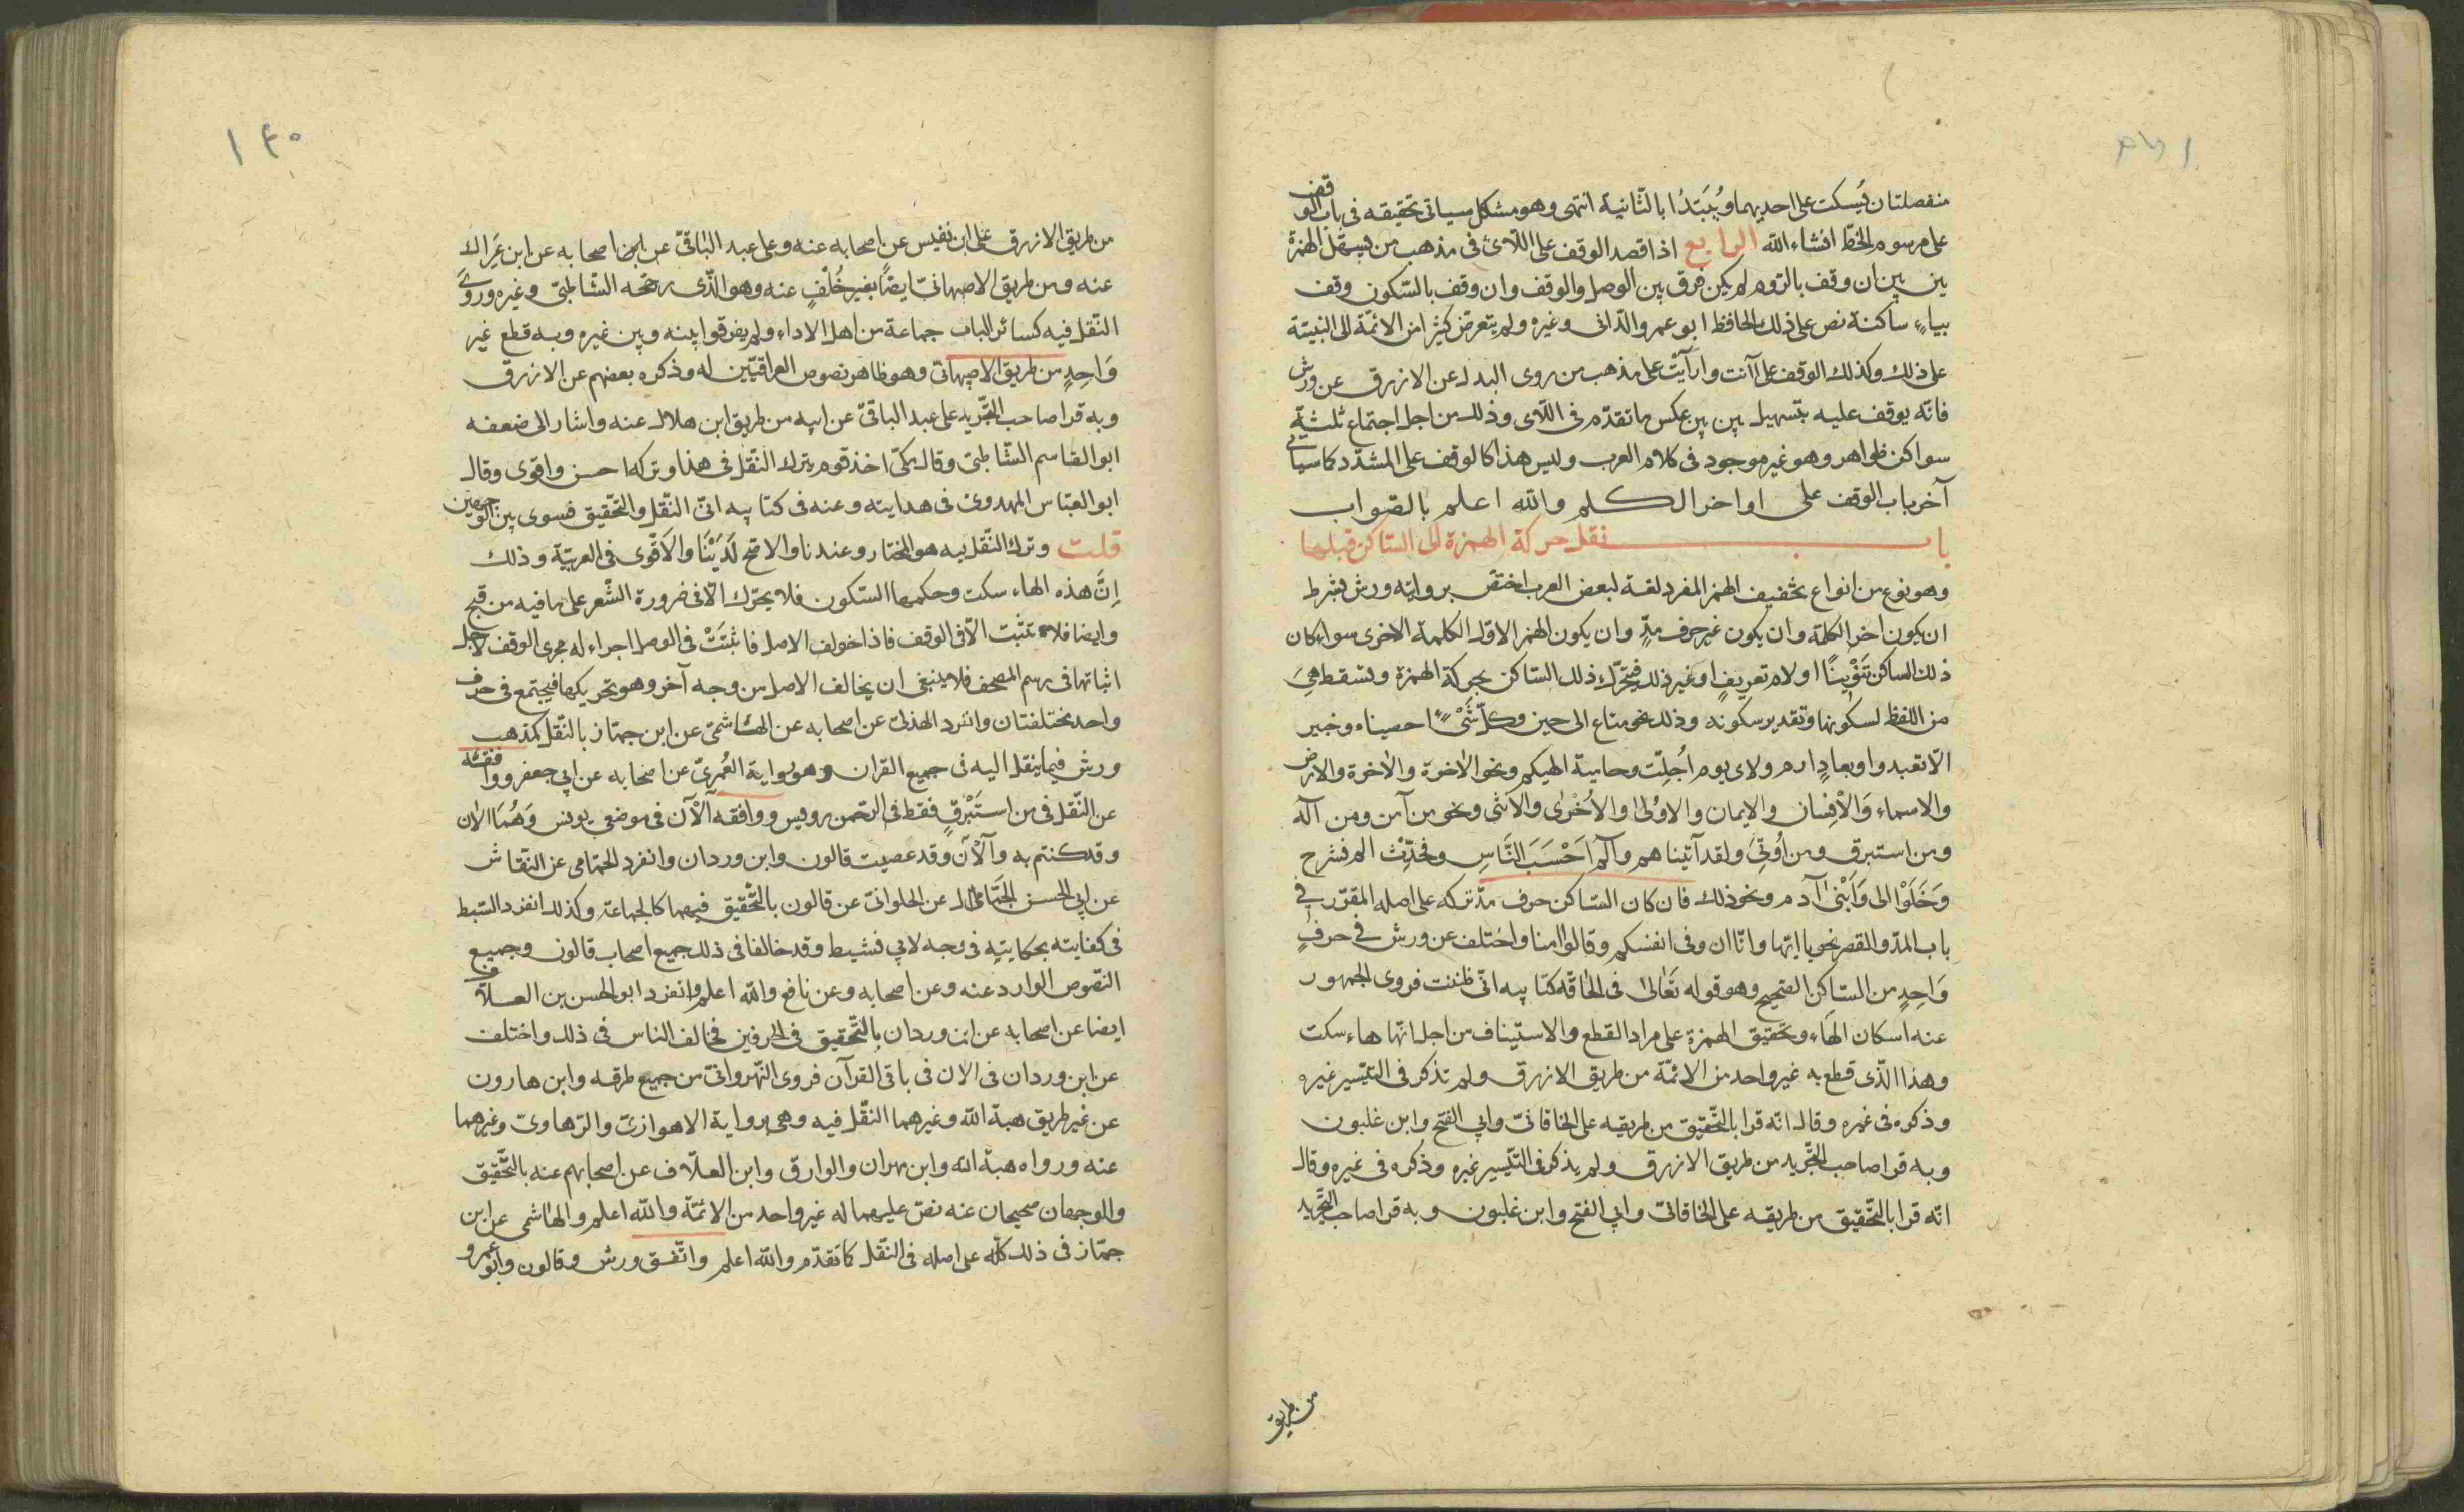 منفصلتان يُسكت على احديهما ويُبَتدُا بالثّانية انتهى وهو مشكل سياتى تحقيقه فى باب الوقف
على مرسوم الخطّ انشاء الله الرابع اذا قصد الوقف على اللّائ فى مذهب من يسهّل الهمزة
بين بين ان وقف بالرّوم لم يكن فرق بين الوصل والوقف وان وقف بالسّكون وقف
بياءٍ ساكنة نص على ذلك الحافظ ابو عمرو الدّانى وغيره ولم يتعرض كثير من الائمّة الى التنبيه
على ذلك وكذلك الوقف على آانت وارآيْتَ على مذهب من روى البدل عن الازرق عن ورش
فانّه يوقف عليه بتسهيل بين بين عكس ما تقدّم فى اللّاى وذلك من اجل اجتماع ثلثةِ
سواكن ظواهر وهو غير موجود فى كلام العرب وليس هذا كالوقف على المشدّد كما سياتى
آخر باب الوقف على اواخر الكلم والله اعلم بالصّواب
باب نقل حركة الهمزة الى السّاكن قبلها
وهو نوع من انواع تخفيف الهمز المفرد لغة لبعض العرب اختصّ بروايته ورش بشرط
ان يكون اخر الكلمة وان يكون غير حرف مدٍّ وان يكون الهمز الاوّل الكلمة الاخرى سواء كان
ذلك الساكن تَنْوِينًا اولام تعريفٍ او غير ذلك فيتحرّك ذلك السّاكن بحركة الهمزة وتسقط هِىَ
من اللفظ لسكونها وتقدير سكونه وذلك نحو متاع الى حين وكلّ شَىْءٍ احصيناه وخبير
الّا تعبدوا وبعادٍ ارم ولاى يوم اُجلِّت وحامية الهيكم ونحو الآخرة والآخرة والارض
والاسماء وَالْاِنسان والايمان والاوُلىٰ والاُخْرٰى والانثى ونحو من آمن ومن آله
ومن استبرق ومن اُوتِىَ ولقد آتيناهم وآلم اَحْسَبَ النَّاسِ وفحَدِّثْ الم نشرح
وَخَلَوْا الى وَابْنَىْ آدم ونحو ذلك فان كان السّاكن حرف مدّ تركه على اصله المقرّر فى
باب المدّ والقصر نحو يا ايّها وانّا ان وفى انفسكم وقالوا امنا واختلف عن ورش فى حرفٍ
وَاحِدٍ من السّاكن الصّحيح وهو قوله تَعَالىٰ فى الحاقّه كتابيه انّى ظننت فروى الجمهور
عنه اسكان الهَاءِ وتحقيق الهمزة على مراد القطع والاستيناف من اجل انّها هاء سكت
وهذا الّذى قطع به غير واحد من الائمّة من طريق الازرق ولم تذكر فى التيّسير غيره
وذكره فى غيره وقال انّه قرا بالتّحقيق من طريقيه على الخاقانّى وابى الفتح وابن غلبون
وبه قرا صاحب التّجريد من طريق الازرق ولم يذكر فى التّيسير غيره وذكره فى غيره وقال
انّه قرا بالتّحقيق من طريقيه على الخاقانّى وابى الفتح وابن غلبون وبه قرا صاحب التَّجريد
من طريق
١٤٠
من طريق الازرق على ابن نفيس عن اصحابه عنه وعلى عبد الباقىّ عن اصحابه عن ابن عِرَاك
عنه ومن طريق الاصبهانّى ايضًا بغير خُلْفٍ عنه وهو الّذى رجّحه الشّاطبّى وغيره وروٰى
النّقل فيه كسائر الباب جماعة من اهل الاداء ولم يفرقوا بينه وبين غيره وبه قطع غير
وَاحِدٍ من طريق الاصبهانّى وهو ظاهر نصوص العراقيّين له وذكره بعضهم عن الازرق
وبه قرا صاحب التّجريد على عبد الباقىّ عن ابيه من طريق ابن هلال عنه واشار الى ضعفه
ابو القاسم الشّاطبىّ وقال مكّى اخذ قوم بترك النّقل فى هذا وتركه احسن واقوى وقال
ابو العبّاس المهدوىّ فى هدايته وعنه فى كتابيه انّى النّقل والتّحقيق فسوى بين الوجهين
قلت وترك النّقل فيه هو المختار وعندنا والاصحّ لَدَيْنَا والاَقْوى فى العربيّة وذلك
اِنَّ هذه الهاء سكت وحكمها السّكون فلا يحرّك الّا فى ضرورة الشّعر على ما فيه من قبح
وايضا فلا تثبت الّا فى الوقف فاذا خولف الاصل فاثبتَتْ فى الوصل اجراء له مجرى الوقف لاجل
اثباتها فى رسم المصحف فلا ينبغى ان يخالف الاصل من وجه آخر وهو تحريكها فيجتمع فى حرف
واحد مختلفتان وانفرد الهذلىّ عن اصحابه عن الهاشمىّ عن ابن جمّاز بالنّقل كمذهب
ورش فيما ينقل اليه فى جميع القران وهو رواية العُمرىّ عن اصحابه عن ابى جعفر ووافقه
عن النّقل فى من استَبْرَقٍ فقط فى الرّحمن رويس ووافقه آلْآن فى موضعى يونس وَهُمَا الآن
وقد كنتم به وآلْآن وقد عصيت قالون وابن وردان وانفرد الحمّامى عن النّقاش
عن ابى الحسن الجمّال عن الحلوانىّ عن قالون بالتّحقيق فيهما كالجماعة وكذلك انفرد السّبط
فى كفايته بحكايتِه فى وجه لابى نشيط وقد خالفا فى ذلك جميع اصحاب قالون وجميع
النّصوص الوارد عنه وعن اصحابه وعن نافع والله اعلم وانفرد ابو الحسن بن العلّاف
ايضا عن اصحابه عن ابن وردان بالتّحقيق فى الحرفين فخالف الناس فى ذلك واختلف
عن ابن وردان فى الان فى باقى القرآن فروى النّهروانّى من جميع طرقه وابن هارون
عن غير طريق هبة الله وغيرهما النّقل فيه وهى رواية الاهوازىّ والرّهاوىّ وغيرهما
عنه ورواه هبة الله وابن مهران والوراق وابن العلّاف عن اصحابهم عنه بالتّحقيق
والوجهان صحيحان عنه نصّ عليهما له غير واحد من الائمّة والله اعلم والهاشمى عن ابن
جمّاز فى ذلك كلّه على اصله فى النّقل كما تقدّم والله اعلم واتّفق ورش وقالون وابو عمرو